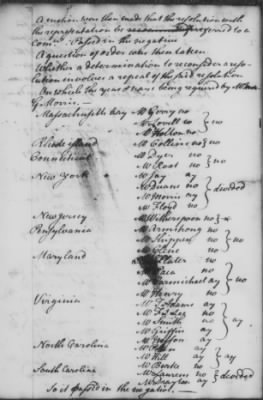 A motion was then made that the resolution with
the representation be referred to a
Com^ee. Passed in the negative
A question of order was then taken
Whether a determination to reconsider a reso-
lution involves a repeal of the said resolution
On which the yeas & nays being required by M^r
G Morris. —
Massachusetts bay M^r Gerry no
M^r Lovell no } no
M^r Holton no
Rhode island M^r Collins no } no
Connecticut M^r Dyer no
M^r Root no } no
New York M^r Jay ay
M^r Duane no } divided
M^r Morris ay
M^r Floyd no
New Jersey M^r Witherspoon no } x
Pensylvania M^r Armstrong no
M^r Shippen no } no
M^r no
Maryland M^r Plater no
M^r Paca no } no
M^r Carmichael ay
M^r Henry no
Virginia M^r T Adams ay
M^r F L Lee no
M^r Smith ay } ay
M^r Griffin ay
North Carolina M^r ay
M^r Hill ay } ay
M^r Burke no
South Carolina M^r Laurens no } divided
M^r Drayton ay
So it passed in the negative. —